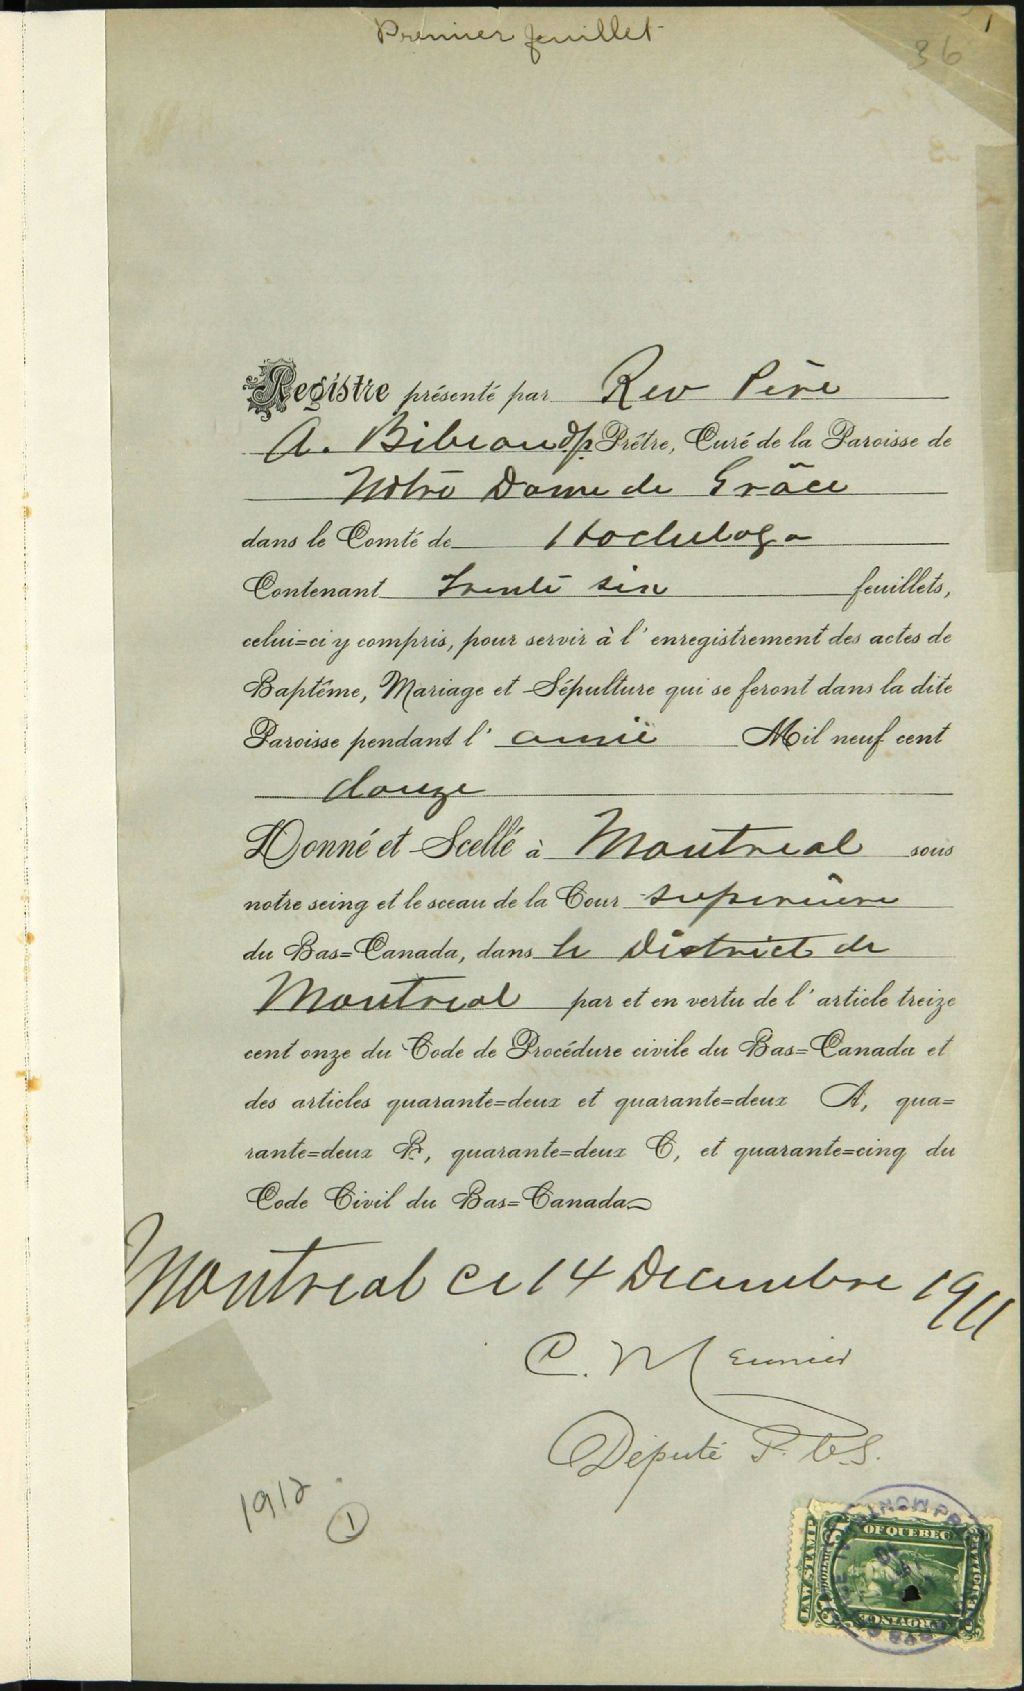 Premier feuillet
1
36
Registre présenté par Rev Père
A. Bibeau o/p. Prêtre, Curé de la Paroisse de
Notre Dame de Grâce
dans le Comté de Hochelaga
Contenant Trente six feuillets,
celui=ci y compris, pour servir à l'enregistrement des actes de
Baptême, Mariage et Sépulture qui se feront dans la dite
Paroisse pendant l'année Mil neuf cent
douze
Donné et Scellé à Montreal sous
notre seing et le sceau de la Cour superieure
du Bas=Canada, dans le District de
Montreal par et en vertu de l'article treize
cent onze du Code de Procédure civile du Bas=Canada et
des articles quarante=deux et quarante=deux A, qua=
rante=deux B, quarante=deux C, et quarante=cinq du
Code Civil du Bas=Canada
Montreal ce 14 Decembre 1911
C. Meunier
Député P. C. S.
1912
1
LAW STAMP
OF QUEBEC
PROVINCE